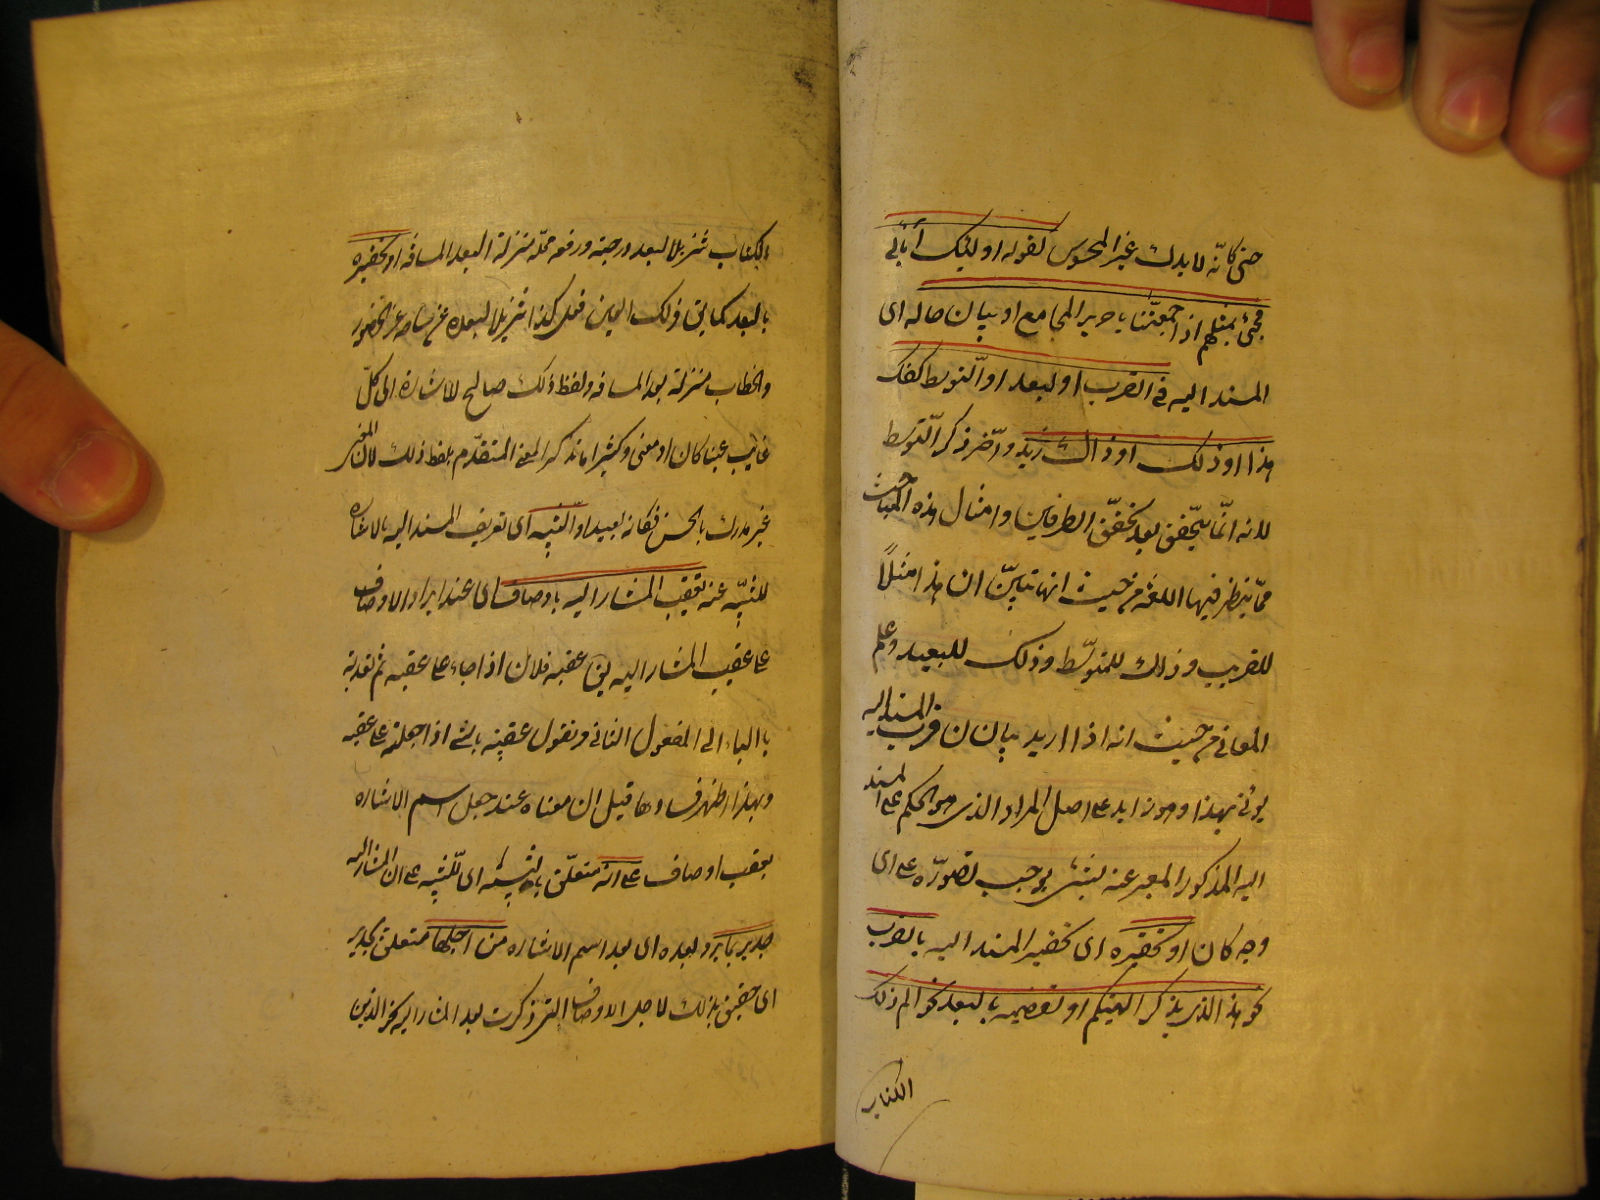 حتى كانّه لا يدرك غير المحسوس كقوله اولئك آبائى
فجئنى بمثلهم اذا جمعتنا يا جرير المجامع او بيان حاله اى
المسند اليه فى القرب او البعد او التوسط كقولك
هذا او ذلك او ذاك زيد واخّر ذكر التوسّط
لانه انّما يتحقق بعد تحقّق الطرفين وامثال هذه المباحث
ممّا ينظر فيها اللغة من حيث انها تبيّن ان هذا مثلاً
للقريب وذاك للمتوسّط وذلك للبعيد وعلم
المعانى من حيث انه اذا اريد بيان قرب المسند اليه
يؤتى بهذا وهو زايد على اصل المراد الذى هو الحكم على المسند
اليه المذكور المعبر عنه بشئ يوجب تصوّره على اى
وجه كان او تحقيره اى تحقير المسند اليه بالقرب
نحو هذا الذى يذكر الهتكم او تعظيمه بالبعد نحو الم ذلك
الكتاب
الكتاب تنزيلا لبعد درجته ورفعة محلّه منزلة البعد المسافة او تحقيره
بالبعد كما يقال ذلك اللعين فعل كذا تنزيلا لبعده عن ساحة عز الحضور
والخطاب منزلة بعد المسافة ولفظ ذلك صالح للاشارة الى كلّ
غايب عينا كان او معنى وكثيرا ما يذكر المعنى المتقدّم بلفظ ذلك لان المعنى
غير مدرك بالحس فكانه بعيد او التنبيه اى تعريف المسند اليه بالاشاره
للتنبيه عند تعقيب المشار اليه باوصاف اى عند ايراد الاوصاف
على عقيب المشار اليه يقال عقبه فلان اذا جاء على عقبه ثم تعديه
بالباء الى المفعول الثانى وتقول عقبته بالشئ اذا جعلته على عقبه
وبهذا ظهر فساد ما قيل ان معناه عند جعل اسم الاشاره
بعقب اوصاف على انّه متعلّق بالتنبيه اى للتنبيه على ان المشار اليه
جدير بما يرد بعده اى بعد اسم الاشاره من اجلها متعلق بجدير
اى حقيق بذلك لاجل الاوصاف التى ذكرت بعد المشار اليه نحو الذين